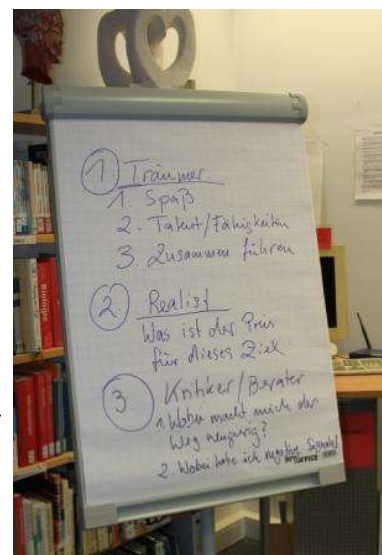 1. Träumer
1. Spaß
2. Talent/Fähigkeiten
3. Zusammen führen
2. Realist
Was ist der Preis
für dieses Ziel
3 Kritiker/Berater
1. Wobei macht mich der
Weg neugierig?
2. Wobei habe ich negative
OFFICE
Biologie